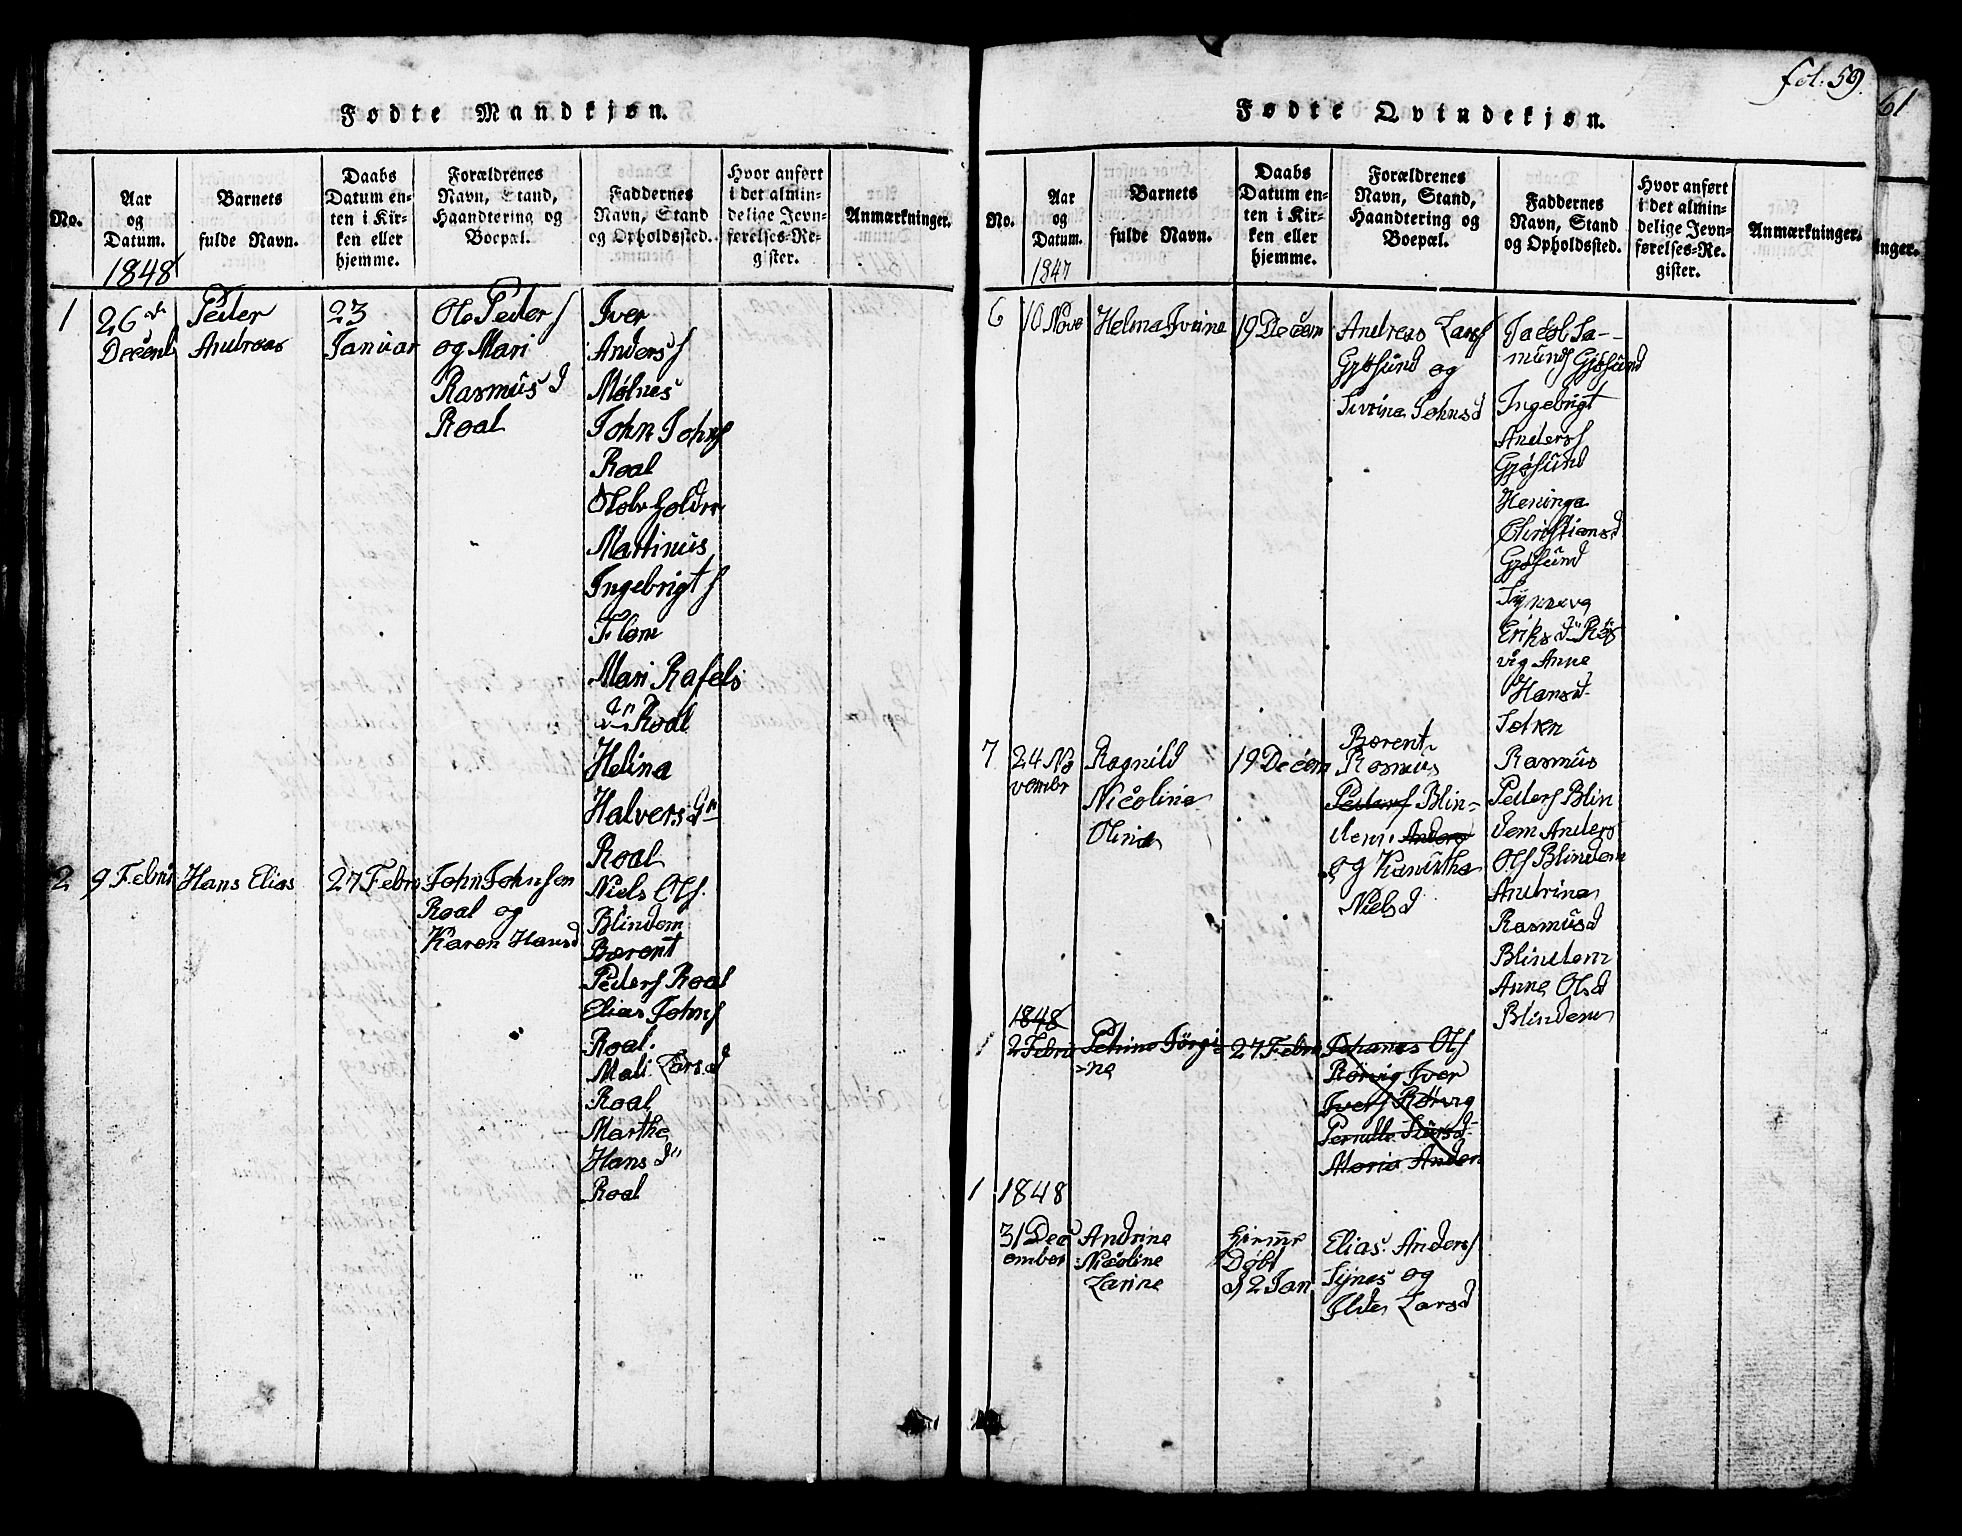 Fødte Mandkjøn.
No.
Aar
og
Datum.
1848
Barnets
fulde Navn.
Daabs
Datum en-
ten i Kir-
ken eller
hjemme.
Forældrenes
Navn, Stand,
Haandtering og
Boepæl.
Faddernes
Navn, Stand
og Opholdssted.
Hvor anført
i det almin-
delige Jevn-
førelses-Re-
gister.
Anmærkninger.
1
26de
Decemb
Peder
Andreas
23
Januar
Ole Peders
og Mari
Rasmusd
Roal
Iver
Anders
Mølnes
John Johns
Roal
Martinus
Ingebrigts
Flem
Mari Rafels
dn Roal
Helina
Halversdn
Roal
2
9 Febru
Hans Elias
27 Febru
John Johnsen
Roal og
Karen Hansd
Niels Ols.
Blindem
Bærent
Peders Roal
Elias Johns
Roal.
Mali Larsd
Roal
Marthe
Hans dn
Roal
fol. 59.
61
Fødte Qvindekjøn.
No.
Aar
og
Datum.
1847
Barnets
fulde Navn.
Daabs
Datum en-
ten i Kir-
ken eller
hjemme.
Forældrenes
Navn, Stand,
Haandtering og
Boepæl.
Faddernes
Navn, Stand
og Opholdssted.
Hvor anført
i det almin-
delige Jevn-
førelses-Re-
gister.
Anmærkninger.
nger.
6
10 Nove
Helma Ivrine
19 Decem
Andreas Lars
Gjøsund og
Sivrine Johnsd
Jacob Sa-
munds Gjøsund
Ingebrigt
Anders
Gjøsund
Heninga
Christiansd
Gjøsund
Synneva
Eriksdn Røs
vig Anne
Hansd
7
24 No
vembr
Ragnild
Nicoline
Olina
19 Decem
Bærent
Rasmus
Peders Blin-
dem Anders
og Kanutha
Nielsd
Rasmus
Peders Blin
dem Anders
Ols Blindem
Andrina
Rasmusd
Blindem
Anne Olsd
Blindem
1848
1
2 Febru
Petrine Jørgi
-ne
27 Febru
Johanes Ols
Rørvig Iver
Ivers Rørvig
Pernille
Maria Anders
1
1848
31 Dec
ember
Andrine
Nicoline
Larine
Hiemme
Døbt
d 2 Jan
Elias Anders
Synes og
Larsd